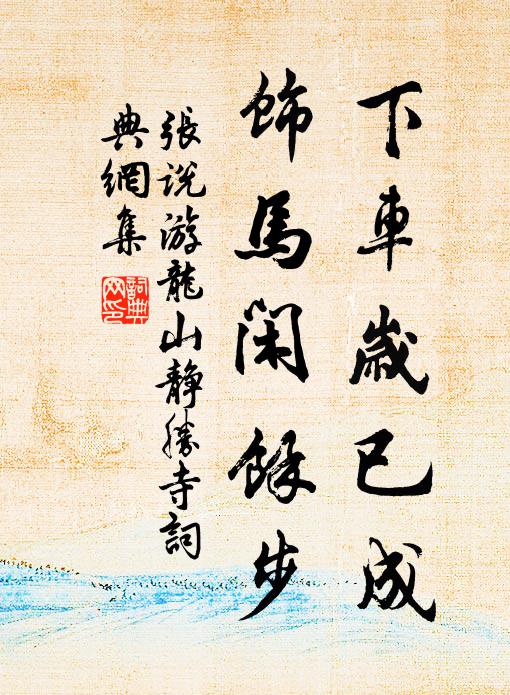 下車歲已成
飾馬閑餘步
張說游龍山靜勝寺詞
典網集
詞典
网印